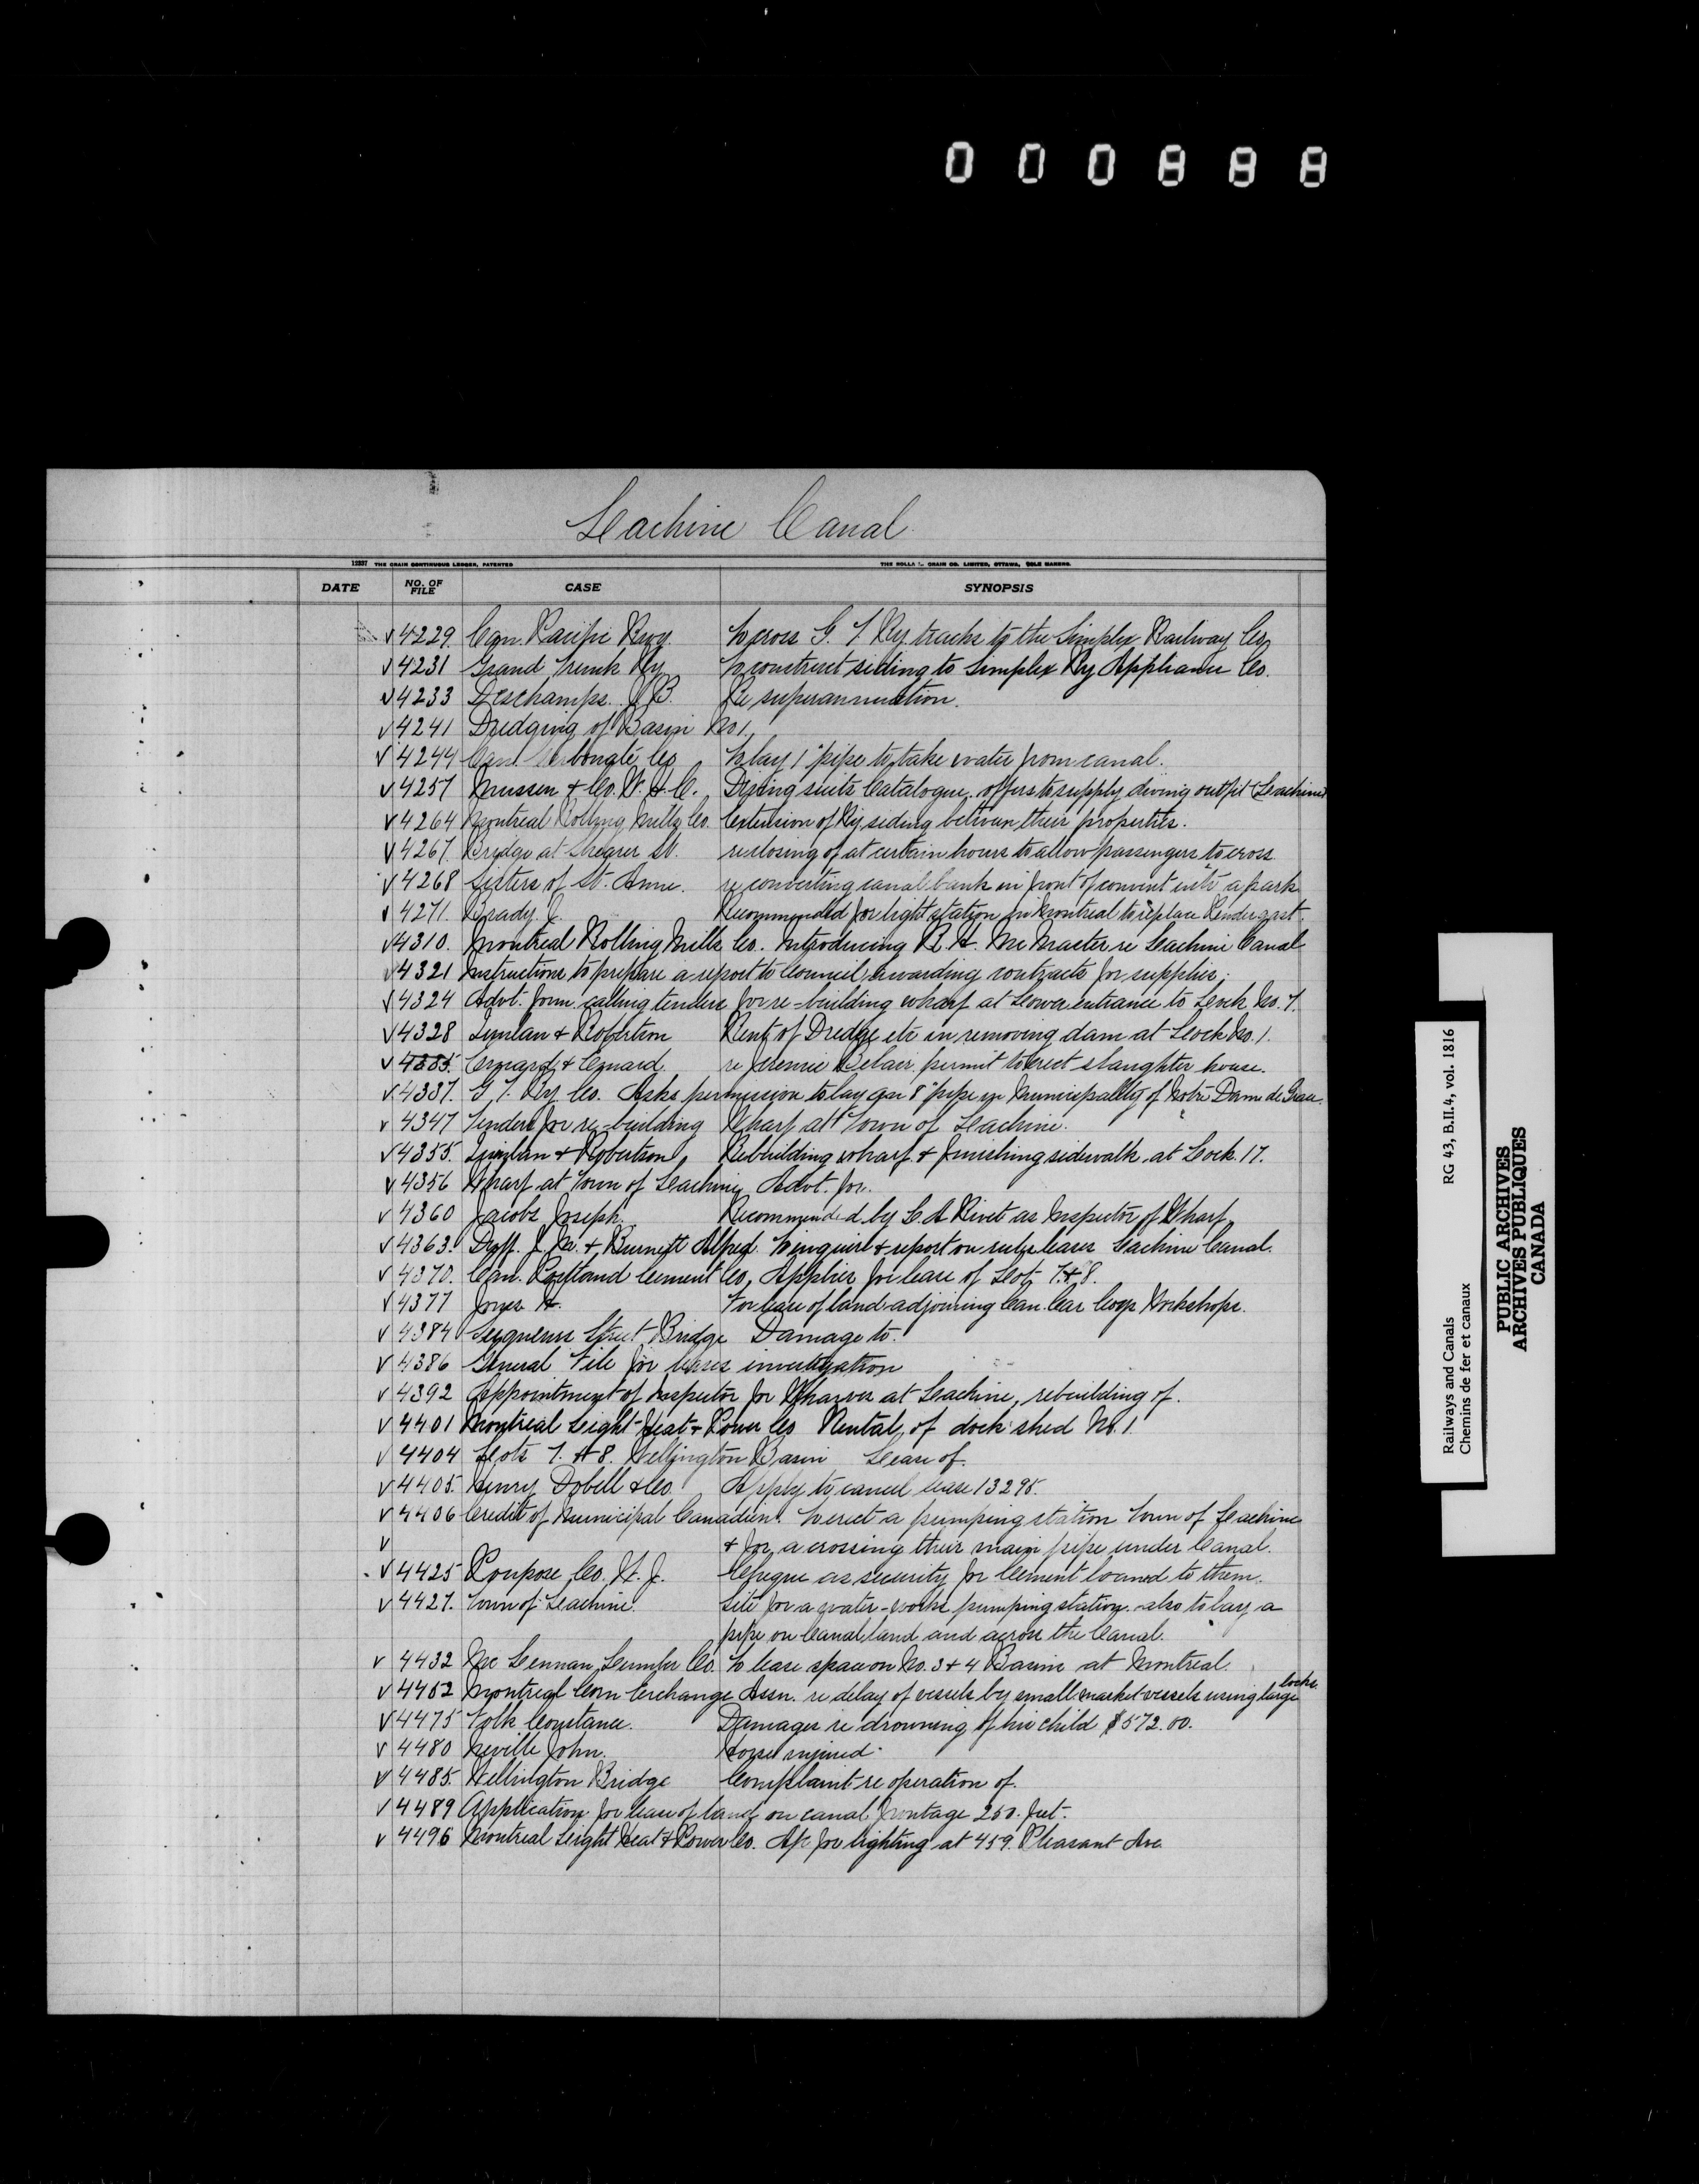 000888
Lachine Canal
12237 THE CRAIN CONTINUOUS LEDGER, PATENTED
CRAIN CO. LIMITED, OTTAWA, SOLE MAKERS.
DATE NO. OF FILE CASE SYNOPSIS
√ 4229. Can. Pacific Rwy. To cross G. T. Ry. tracks to the Simplex Railway Co.
√ 4231 Grand Trunk Ry To construct siding to Simplex Ry Appliance Co.
√ 4233 Deschamps. J. B. Re superannuation.
√ 4241 Dredging of Basin No 1.
√ 4244 Can. Carbonate Co To lay 1" pipe to take water from canal.
√ 4257 Mussen & Co. W. H. C. Diving suits Catalogue. offers to supply diving outfit (Lachine)
√ 4264 Montreal Rolling Mills Co. Extension of Ry siding between their properties.
√ 4267. Bridge at Shearer St. re closing of at certain hours to allow passengers to cross
√ 4268 Sisters of St. Anne. re converting canal bank in front of convent into a park
√ 4271. Brady. J. Recommended for light station in Montreal to replace Pendergast.
√ 4310. Montreal Rolling Mills Co. Introducing R. H. McMaster re Lachine Canal
√ 4321 Instructions to prepare a report to Council awarding contracts for supplies.
√ 4324 Advt. form calling tenders for re-building wharf at Lower entrance to Lock No. 1.
√ 4328 Quinlan & Robertson Rent of Dredge etc in removing dam at Lock No. 1.
√ 4335. & re Belair permit to erect slaughter house.
√ 4337. G. T. Ry. Co. Asks permission to lay an 8" pipe in Municipality of Notre Dame de Grace.
√ 4347 Tenders for re-building Wharf at Town of Lachine.
√ 4355. Quinlan & Robertson, Rebuilding wharf & finishing sidewalk at Lock. 17.
√ 4356 Wharf at Town of Lachine Advt. for.
√ 4360 Jacobs Joseph. Recommended by L. A Rivet as Inspector of Wharf.
√ 4363. J. M. & Burnett Alfred. To inquire & report on sub-leases Lachine Canal.
√ 4370. Can. Portland Cement Co. Applies for lease of Lot 7. & 8.
√ 4377 Jones H. For lease of land adjoining Can. Car Co's Workshops.
√ 4384 Seigneurs Street Bridge Damage to.
√ 4386 General File for leases investigation
√ 4392 Appointment of Inspector for Wharves at Lachine, rebuilding of.
√ 4401 Montreal Light Heat & Power Co Rental of dock shed No. 1
√ 4404 Lots 7. & 8. Wellington Basin Lease of.
√ 4405. Henry Dobell & Co. Apply to cancel lease 13295.
√ 4406 Credit of Municipal Canadien. To erect a pumping station Town of Lachine
√ & for a crossing their main pipe under Canal.
√ 4425 Poupore Co. W. J. Cheque as security for Cement loaned to them.
√ 4427. Town of Lachine. Site for a water-works pumping station. also to lay a
pipe on Canal land and across the Canal.
√ 4432 McLennan Lumber Co. To lease space on No. 3 & 4 Basins at Montreal.
√ 4452 Montreal Corn Exchange Assn. re delay of vessels by small market vessels using large locks.
√ 4475 Volk Constance. Damages re drowning of his child $572.00.
√ 4480 Neville John. Horse injured.
√ 4485. Wellington Bridge Complaint re operation of.
√ 4489 Application for lease of land on canal frontage 250. feet.
√ 4496 Montreal Light Heat & Power Co. Ap. for lighting at 459. Pleasant Ave
Railways and Canals RG 43, B.II.4, vol. 1816
Chemins de fer et canaux
PUBLIC ARCHIVES
ARCHIVES PUBLIQUES
CANADA